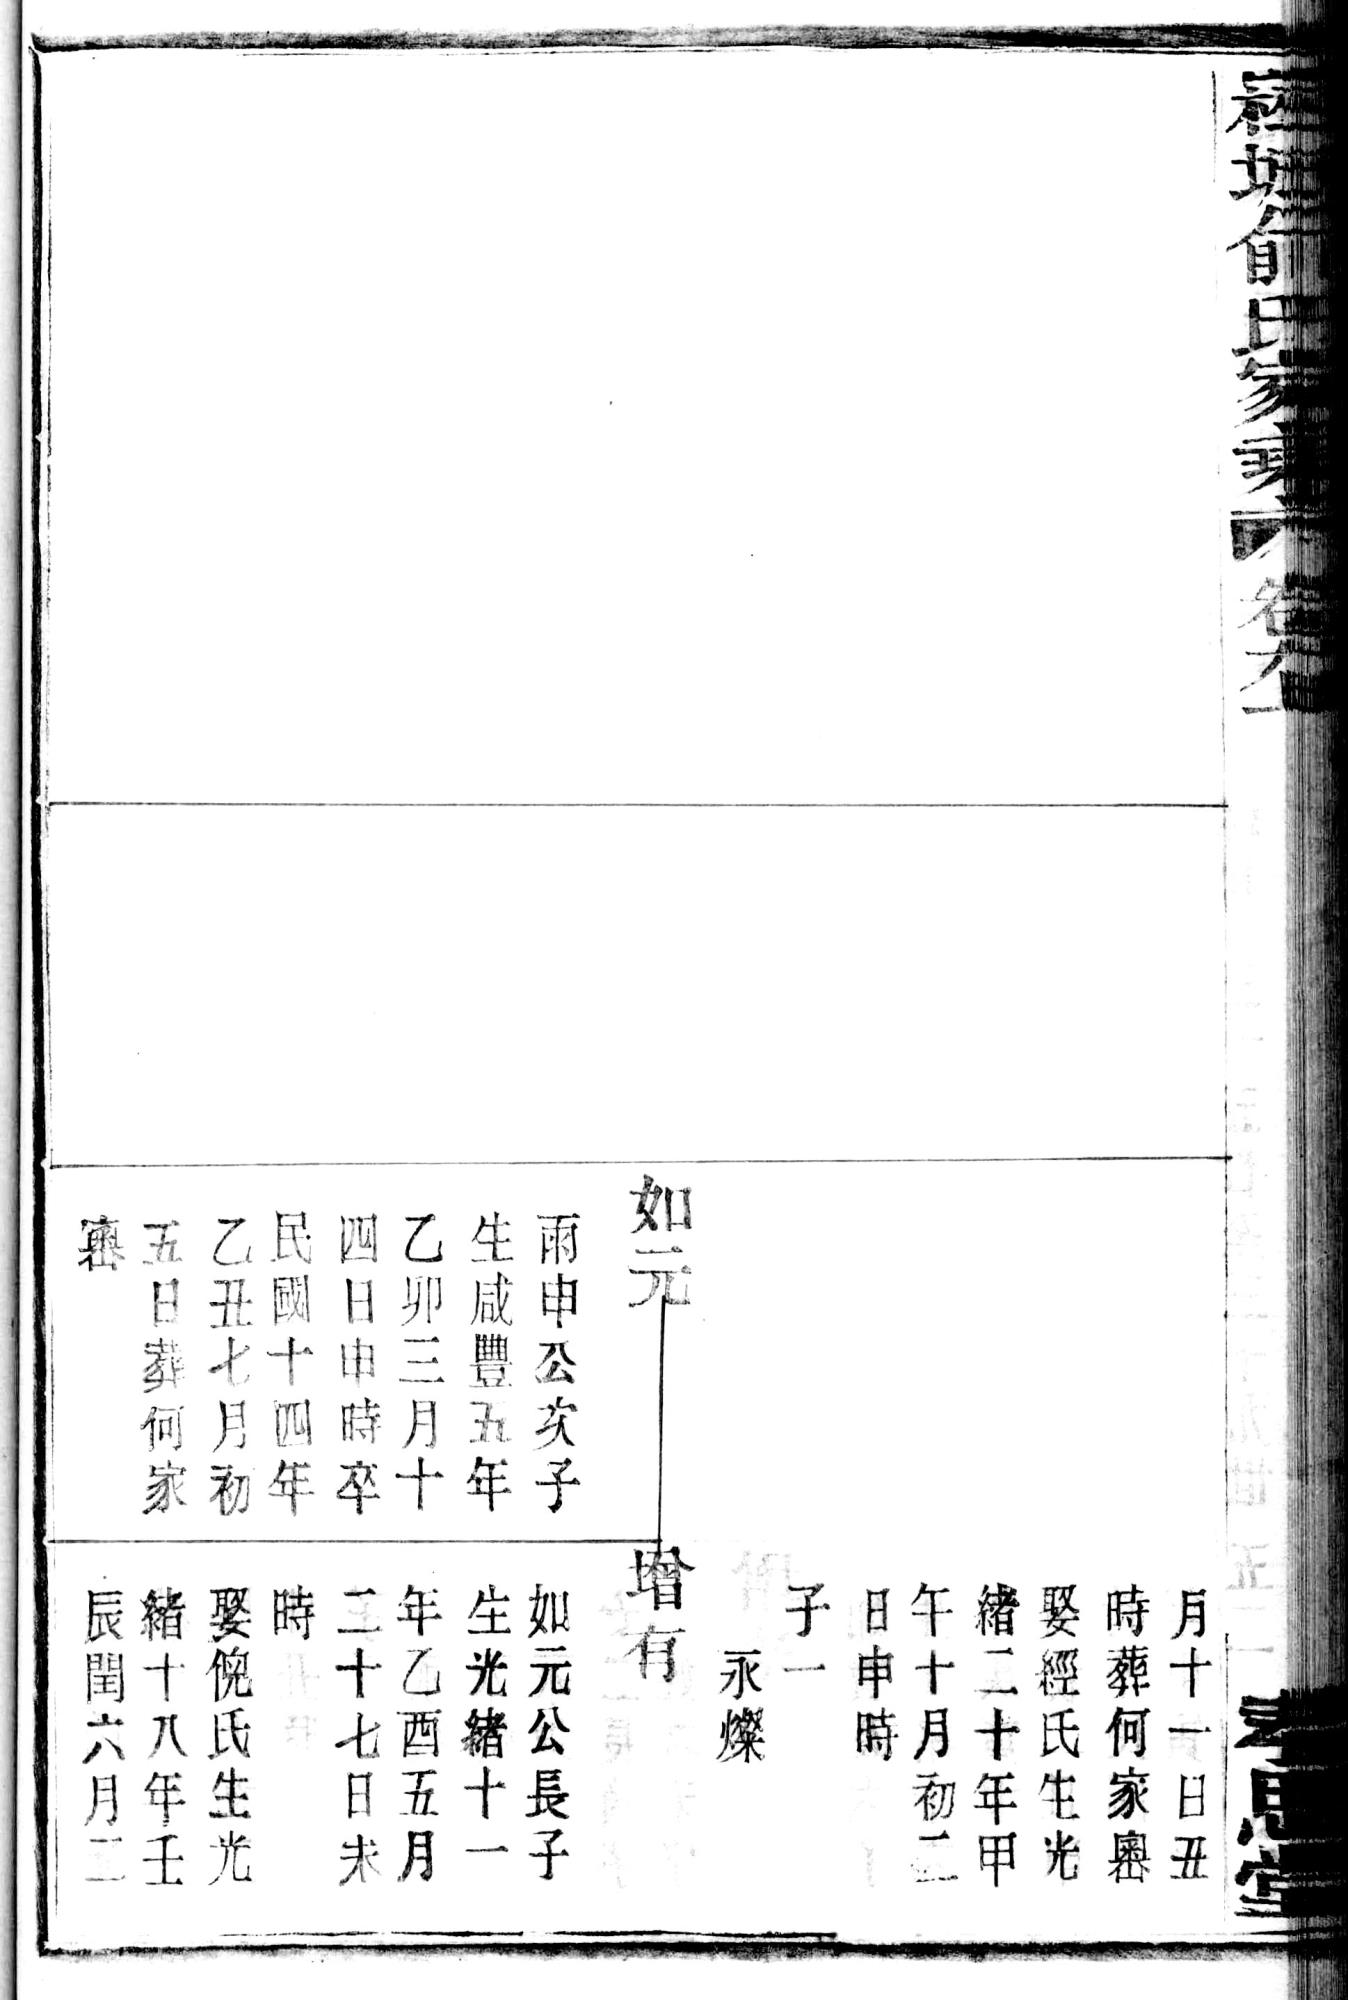 俞氏家乘
孝思堂
如元
雨申公次子
生咸豐五年
乙卯三月十
四日申時卒
民國十四年
乙丑七月初
五日葬何家
嶴
月十一日丑
時葬何家嶴
娶經氏生光
緒二十年甲
午十月初二
日申時
子一
永燦
增有
如元公長子
生光緒十一
年乙酉五月
二十七日未
時
娶倪氏生光
緒十八年壬
辰閏六月二